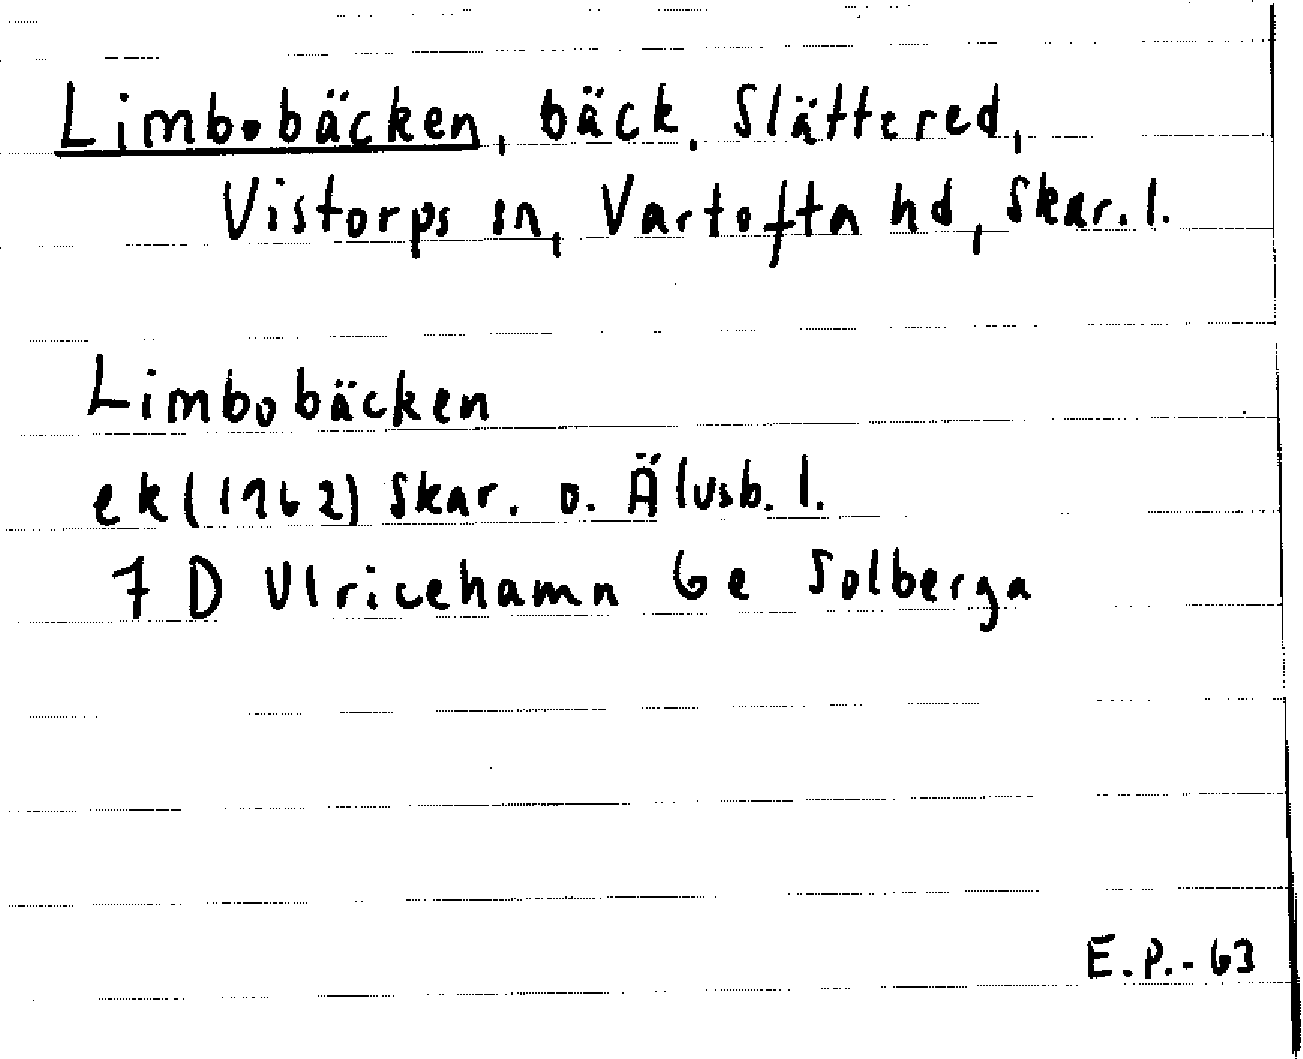 Limbobäcken, bäck, Slättered,
Vistorps sn, Vartofta hd, Skar. l.
Limbobäcken
ek (1962) Skar. o. Älvsb. l.
7 D Ulricehamn 6e Solberga
E.P.-63